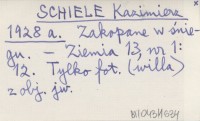 SCHIELE Kazimierz
1928 a. Zakopane w śnie-
gu. – Ziemia 13 nr 1:
12. Tylko fot. (willa)
z obj. jw.